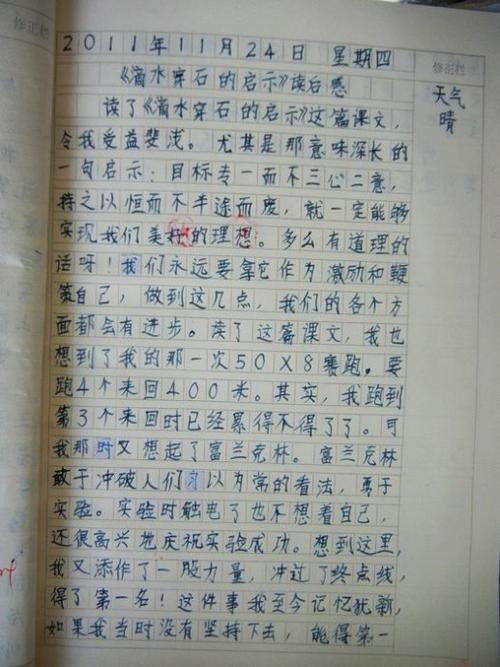 修正栏
修正栏
2011年11月24日 星期四
天气
晴
《滴水穿石的启示》读后感
读了《滴水穿石的启示》这篇课文，
令我受益斐浅。尤其是那意味深长的
一句启示：目标专一而不三心二意，
持之以恒而不半途而废，就一定能够
实现我们美好的理想。多么有道理的
话呀！我们永远要拿它作为激励和鞭
策自己，做到这几点，我们的各个方
面都会有进步。读了这篇课文，我也
想到了我的那一次50×8赛跑。要
跑4个来回400米。其实，我跑到
第3个来回时已经累得不得了了。可
我那时又想起了富兰克林。富兰克林
敢于冲破人们习以为常的看法，勇于
实验。实验时触电了也不想着自己，
还很高兴地庆祝实验成功。想到这里，
我又添作了一股力量，冲过了终点线，
得了第一名！这件事我至今记忆犹新，
如果我当时没有坚持下去，能得第一